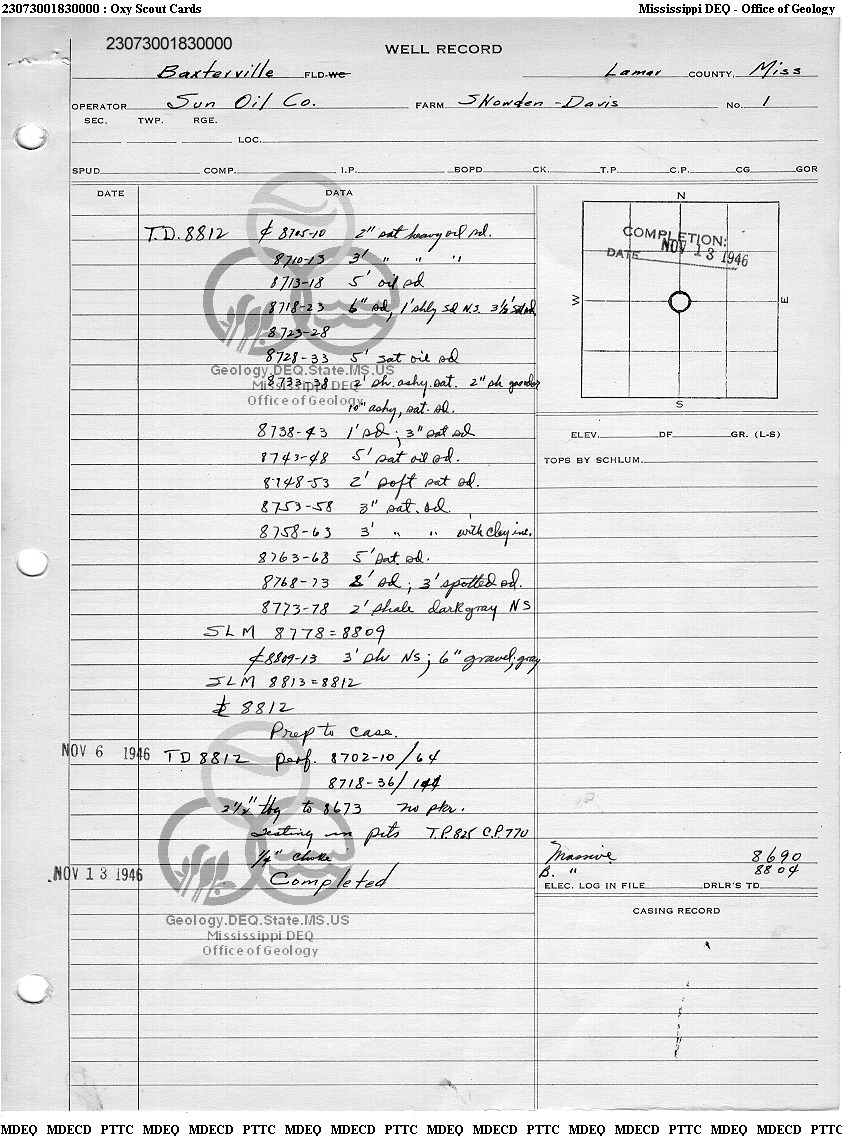 23073001830000 : Oxy Scout Cards Mississippi DEQ - Office of Geology
23073001830000
WELL RECORD
Baxterville FLD-WC Lamar COUNTY, Miss
OPERATOR Sun Oil Co. FARM Snowden-Davis No. 1
SEC. TWP. RGE.
LOC.
SPUD COMP. I.P. BOPD CK. T.P. C.P. CG GOR
DATE DATA
N
W E
S
COMPLETION:
DATE NOV 13 1946
T.D. 8812 ¢ 8705-10 2" sat heavy oil sd.
8710-13 3' " " "
8713-18 5' oil sd
8718-23 6" sd, 1' shly sd N.S. 3½' sd
8723-28
8728-33 5' sat oil sd
Geology.DEQ.State.MS.US
8733-38 2' sh. ashy. sat. 2" sh
Mississippi DEQ
Office of Geology
10" ashy, sat. sd.
8738-43 1' sd; 3" sat sd
ELEV. DF GR. (L-S)
8743-48 5' sat oil sd.
TOPS BY SCHLUM.
8748-53 2' soft sat sd.
8753-58 3" sat. sd.
8758-63 3' " " with clay inc.
8763-68 5' sat. sd.
8768-73 2' sd; 3' spotted sd.
8773-78 2' shale dark gray NS
SLM 8778 = 8809
¢ 8809-13 3' sh NS; 6" gravel; gray
SLM 8813 = 8812
8812
Prep to case.
NOV 6 1946 TD 8812 perf. 8702-10/64
8718-36/144
2½" tbg to 8673 no pkr.
Testing in pits T.P. 825 C.P. 770
¼" choke
NOV 13 1946 Completed
Massive 8690
B. " 8804
ELEC. LOG IN FILE DRLR'S TD
CASING RECORD
Geology.DEQ.State.MS.US
Mississippi DEQ
Office of Geology
MDEQ MDECD PTTC MDEQ MDECD PTTC MDEQ MDECD PTTC MDEQ MDECD PTTC MDEQ MDECD PTTC MDEQ MDECD PTTC